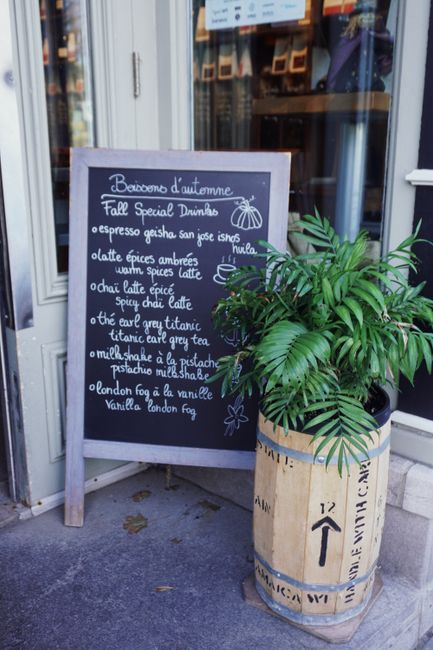 Boissons d'automne
Fall Special Drinks
espresso geisha san jose
huila
latte épices ambrées
warm spices latte
chaï latte épicé
spicy chaï latte
thé earl grey titanic
titanic earl grey tea
milkshake à la pistache
pistachio milkshake
london fog à la vanille
Vanilla london fog
12
HANDLE WITH CAR